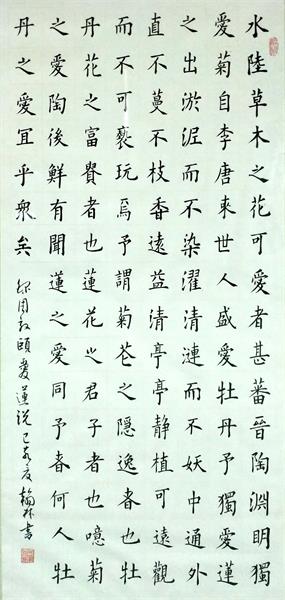 水陸草木之花可愛者甚蕃晉陶淵明獨
愛菊自李唐来世人盛愛牡丹予獨愛蓮
之出淤泥而不染濯清漣而不妖中通外
直不蔓不枝香遠益清亭亭静植可遠觀
而不可褻玩焉予謂菊花之隱逸者也牡
丹花之富貴者也蓮花之君子者也噫菊
之愛陶後鮮有聞蓮之愛同予者何人牡
丹之愛冝乎衆矣 周敦頤愛蓮说己亥夏翰林書